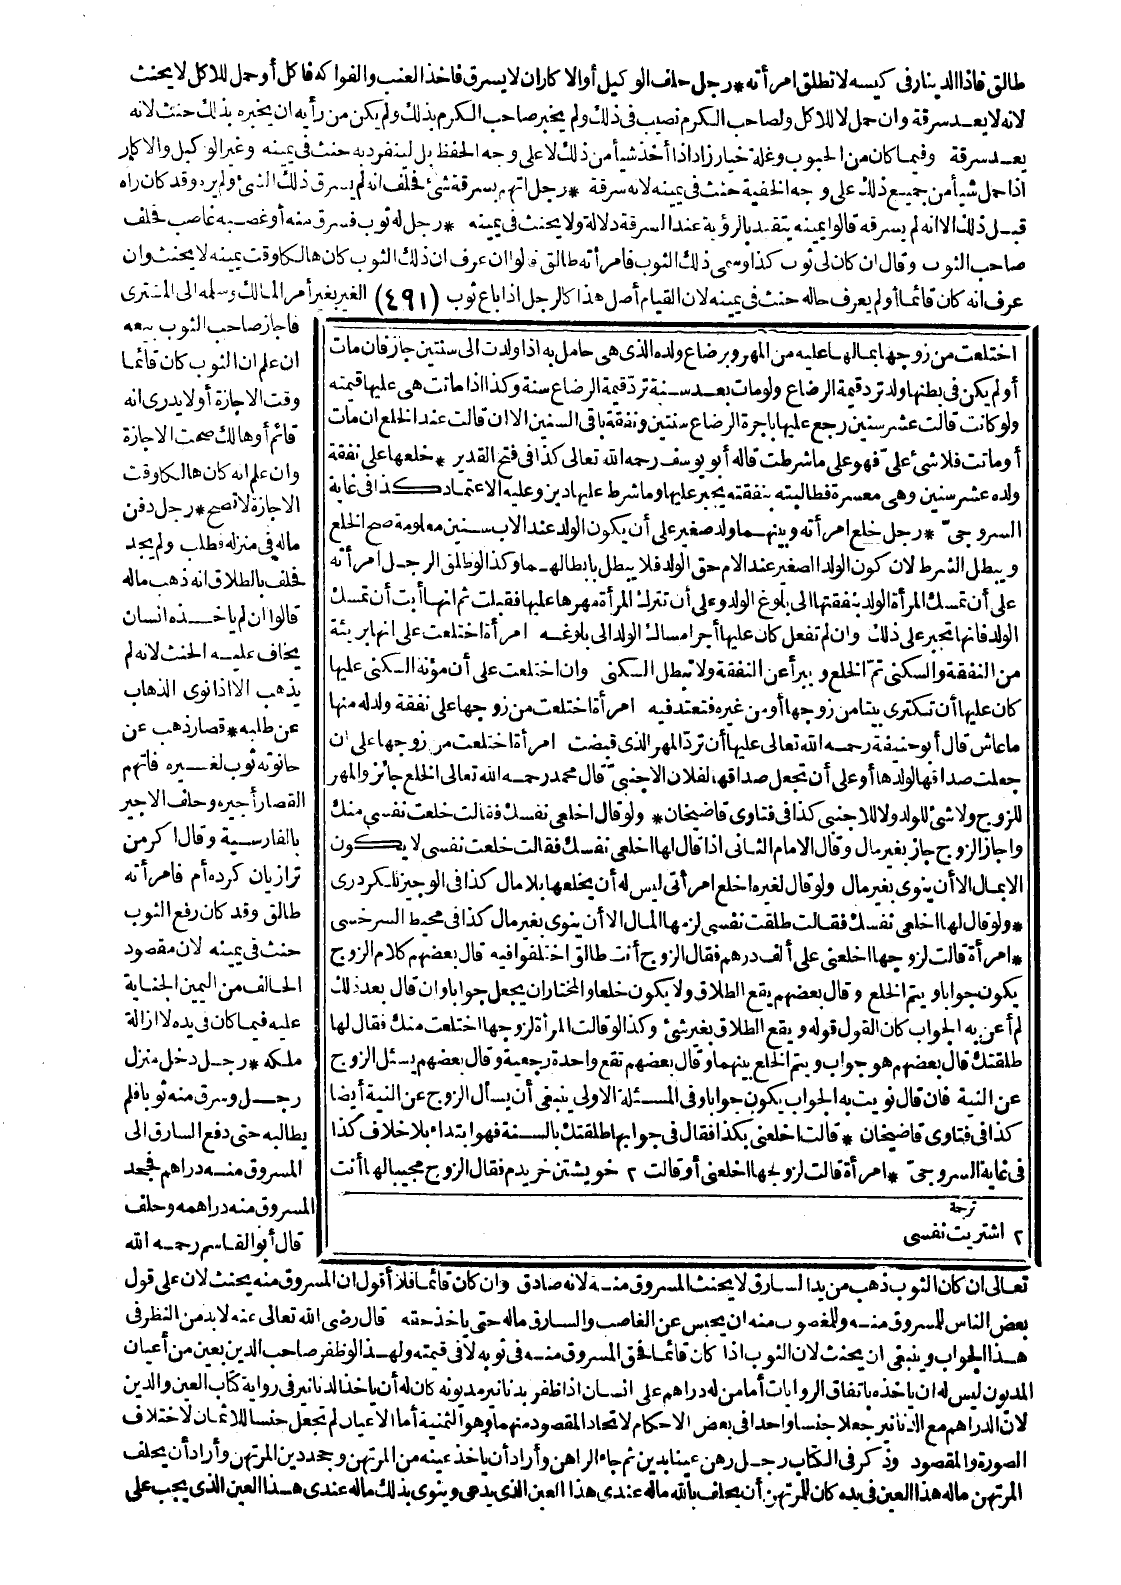 طالق فاذا الدينار فى كيسه لا تطلق امرأته * رجل حلف الوكيل أو الاكاران لا يسرق فاخذ العنب والفواكه فاكل أو حمل للاكل لا يحنث
لانه لا يعد سرقة وان حمل لا للاكل ولصاحب الكرم نصيب فى ذلك ولم يخبر صاحب الكرم بذلك ولم يكن من رأيه ان يخبره بذلك حنث لانه
يعد سرقة وفيما كان من الحبوب وغلة خيار زاد اذا أخذ شيأ من ذلك لا على وجه الحفظ بل لينفرد به حنث فى يمينه وغير الوكيل والاكار
اذا حمل شيأ من جميع ذلك على وجه الخفية حنث فى يمينه لانه سرقة * رجل اتهم بسرقة شئ فحلف انه لم يسرق ذلك الشئ ولم يره وقد كان راه
قبل ذلك الا انه لم يسرقه قالوا يمينه يتقيد بالرؤية عند السرقة دلالة ولا يحنث فى يمينه * رجل له ثوب فسرق منه أو غصبه غاصب فحلف
صاحب الثوب وقال ان كان لى ثوب كذا وسمى ذلك الثوب فامرأته طالق قالوا ان عرف ان ذلك الثوب كان هالكا وقت يمينه لا يحنث وان
عرف انه كان قائما أولم يعرف حاله حنث فى يمينه لان القيام أصل هذا كالرجل اذا باع ثوب (٤٩١) الغير بغير أمر المالك وسلمه الى المشترى
فاجاز صاحب الثوب بيعه
ان علم ان الثوب كان قائما
وقت الاجازة أولا يدرى انه
قائم أو هالك صحت الاجازة
وان علم انه كان هالكا وقت
الاجازة لا تصح * رجل دفن
ماله فى منزله فطلب ولم يجد
فحلف بالطلاق انه ذهب ماله
قالوا ان لم ياخذه انسان
يخاف عليه الحنث لانه لم
يذهب الا اذا نوى الذهاب
عن طلبه * قصار ذهب عن
حانوته ثوب لغيره فاتهم
القصار أجيره وحلف الاجير
بالفارسية وقال اكر من
ترا زيان كرده أم فامرأته
طالق وقد كان رفع الثوب
حنث فى يمينه لان مقصود
الحالف من اليمين الجناية
عليه فيما كان فى يده لا ازالة
ملكه * رجل دخل منزل
رجل وسرق منه ثوبا فلم
يطالبه حتى دفع السارق الى
المسروق منه دراهم فجحد
المسروق منه دراهمه وحلف
قال أبو القاسم رحمه الله
اختلعت من زوجها بمالها عليه من المهر وبرضاع ولده الذى هى حامل به اذا ولدت الى سنتين جاز فان مات
أو لم يكن فى بطنها ولد ترد قيمة الرضاع ولو مات بعد سنة ترد قيمة الرضاع سنة وكذا اذا ماتت هى عليها قيمته
ولو كانت قالت عشر سنين رجع عليها باجرة الرضاع سنتين ونفقة باقى السنين الا ان قالت عند الخلع ان مات
أو ماتت فلا شئ علىّ فهو على ما شرطت قاله أبو يوسف رحمه الله تعالى كذا فى فتح القدير * خلعها على نفقة
ولده عشر سنين وهى معسرة فطالبته بنفقته يجبر عليها وما شرط عليها دين وعليه الاعتماد كذا فى غاية
السروجىّ * رجل خلع امرأته وبينهما ولد صغير على أن يكون الولد عند الاب سنين معلومة صح الخلع
ويبطل الشرط لان كون الولد الصغير عند الام حق الولد فلا يبطل بابطالهما وكذا لو طلق الرجل امرأته
على أن تمسك المرأة الولد بنفقتها الى بلوغ الولد وعلى أن تترك المرأة مهرها عليها فقبلت ثم انها أبت أن تمسك
الولد فانها تجبر على ذلك وان لم تفعل كان عليها أجر امساك الولد الى بلوغه امرأة اختلعت على انها بريئة
من النفقة والسكنى تمّ الخلع ويبرأ عن النفقة ولا تبطل السكنى وان اختلعت على أن مؤنة السكنى عليها
كان عليها أن تكترى بيتا من زوجها أو من غيره فتعتد فيه امرأة اختلعت من زوجها على نفقة ولد له منها
ما عاش قال أبو حنيفة رحمه الله تعالى عليها أن تردّ المهر الذى قبضت امرأة اختلعت من زوجها على ان
جعلت صداقها لولدها أو على أن تجعل صداقها لفلان الاجنبىّ قال محمد رحمه الله تعالى الخلع جائز والمهر
للزوج ولا شئ للولد ولا للاجنبى كذا فى فتاوى قاضيخان * ولو قال اخلعى نفسك فقالت خلعت نفسى منك
واجاز الزوج جاز بغير مال وقال الامام الثانى اذا قال لها اخلعى نفسك فقالت خلعت نفسى لا يكون
الا بمال الا أن ينوى بغير مال ولو قال لغيره اخلع امرأتى ليس له أن يخلعها بلا مال كذا فى الوجيز للكردرى
* ولو قال لها اخلعى نفسك فقالت طلقت نفسى لزمها المال الا أن ينوى بغير مال كذا فى محيط السرخسى
* امرأة قالت لزوجها اخلعنى على ألف درهم فقال الزوج أنت طالق اختلفوا فيه قال بعضهم كلام الزوج
يكون جوابا ويتم الخلع وقال بعضهم يقع الطلاق ولا يكون خلعا والمختار ان يجعل جوابا وان قال بعد ذلك
لم أعن به الجواب كان القول قوله ويقع الطلاق بغير شئ وكذا لو قالت المرأة لزوجها اختلعت منك فقال لها
طلقتك قال بعضهم هو جواب ويتم الخلع بينهما وقال بعضهم تقع واحدة رجعية وقال بعضهم يسئل الزوج
عن النية فان قال نويت به الجواب يكون جوابا وفى المسئلة الاولى ينبغى أن يسأل الزوج عن النية أيضا
كذا فى فتاوى قاضيخان * قالت اخلعنى بكذا فقال فى جوابها طلقتك بالسنة فهو ابتداء بلا خلاف كذا
فى غاية السروجىّ * امرأة قالت لزوجها اخلعنى أو قالت ٢ خويشتن خريدم فقال الزوج مجيبا لها أنت
ترجمة
٢ اشتريت نفسى
تعالى ان كان الثوب ذهب من يد السارق لا يحنث المسروق منه لانه صادق وان كان قائما فلا أقول ان المسروق منه يحنث لان على قول
بعض الناس للمسروق منه وللمغصوب منه ان يحبس عن الغاصب والسارق ماله حتى ياخذ حقه قال رضى الله تعالى عنه لا بد من النظر فى
هذا الجواب وينبغى ان يحنث لان الثوب اذا كان قائما فحق المسروق منه فى ثوبه لا فى قيمته ولهذا لو ظفر صاحب الدين بعين من أعيان
المديون ليس له ان ياخذه باتفاق الروايات أما من له دراهم على انسان اذا ظفر بدنانير مديونه كان له أن ياخذ الدنانير فى رواية كتاب العين والدين
لانّ الدراهم مع الدنانير جعلا جنسا واحدا فى بعض الاحكام لاتحاد المقصود منهما وهو الثمنية أما الاعيان لم تجعل جنسا للاثمان لاختلاف
الصورة والمقصود وذكر فى الكتاب رجل رهن عينا بدين ثم جاء الراهن وأراد أن ياخذ عينه من المرتهن وجحد دين المرتهن وأراد أن يحلف
المرتهن ماله هذا العين فى يده كان للمرتهن أن يحلف بالله ماله عندى هذا العين الذى يدعى وينوى بذلك ماله عندى هذا العين الذى يجب على